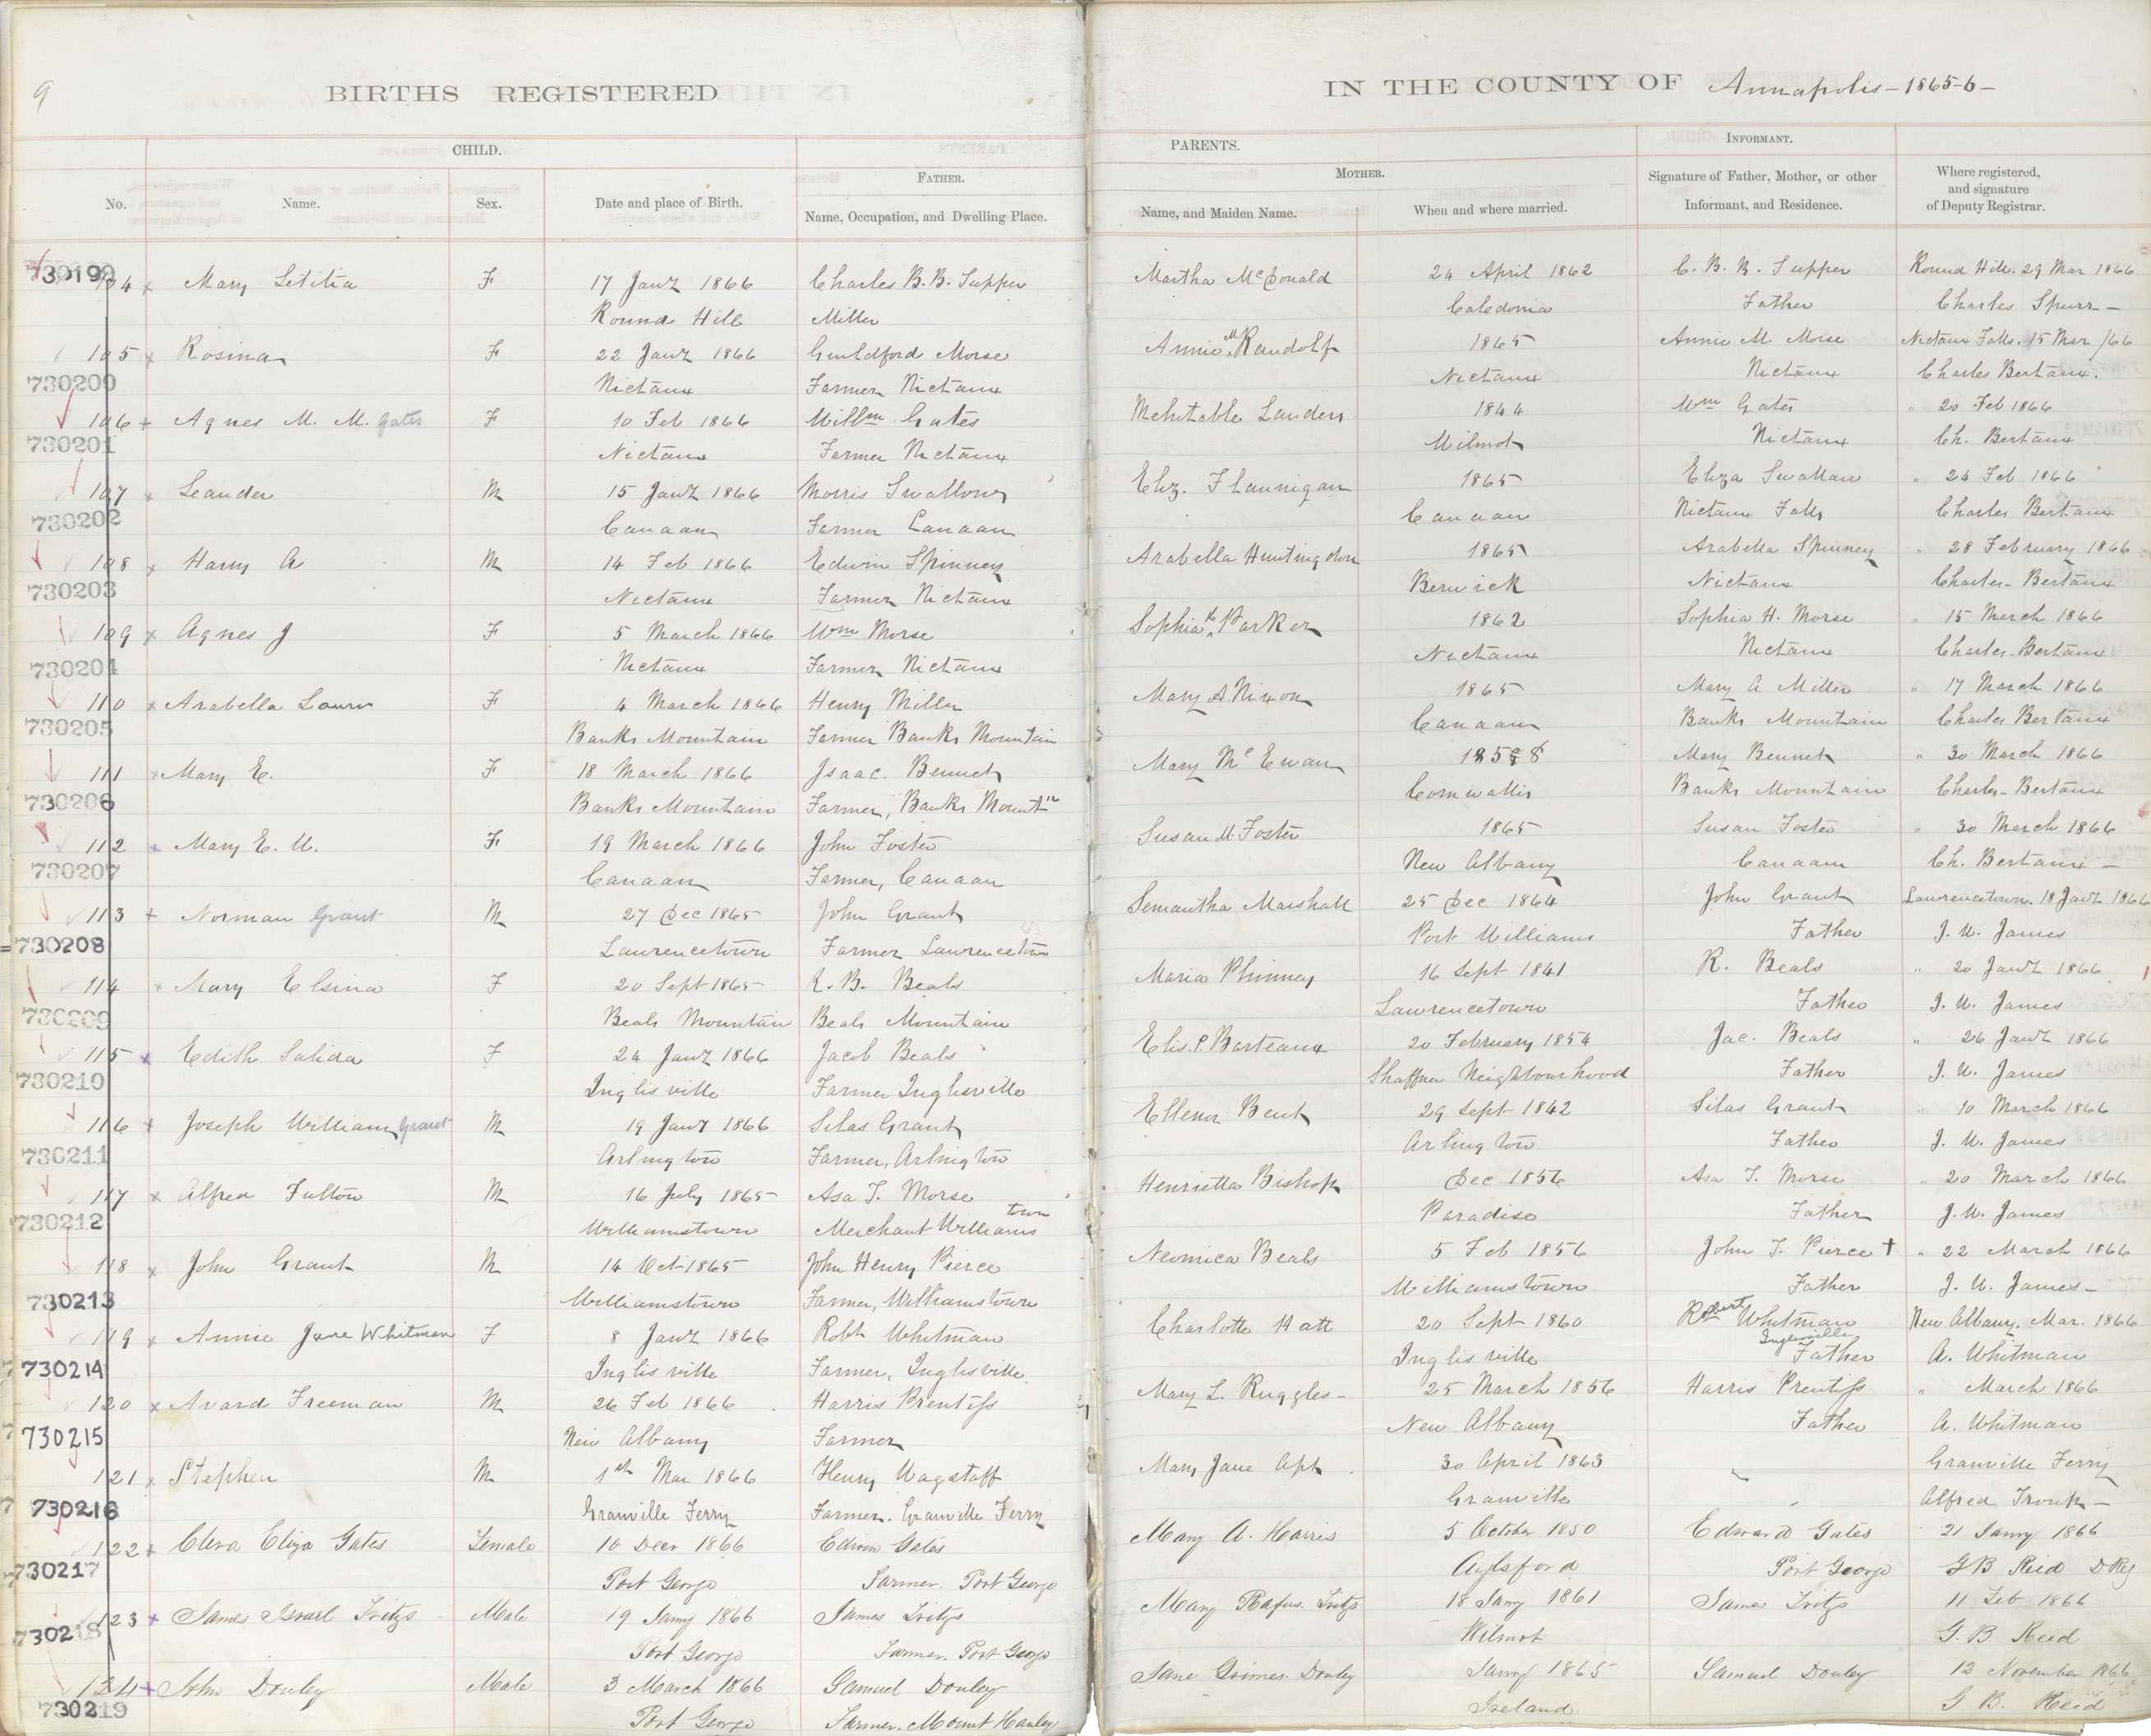 9
BIRTHS REGISTERED IN THE COUNTY OF Annapolis - 1865-6 -
CHILD. PARENTS. INFORMANT.
FATHER. MOTHER.
No. Name. Sex. Date and place of Birth. Name, Occupation, and Dwelling Place. Name, and Maiden Name. When and where married. Signature of Father, Mother, or other Informant, and Residence. Where registered, and signature of Deputy Registrar.
730199 104 x Mary Letitia F 17 Jany 1866 Charles B. B. Tupper Martha McDonald 24 April 1862 C. B. B. Tupper Round Hill. 29 Mar 1866
Round Hill Miller Caledonia Father Charles Spurr -
105 x Rosina F 22 Jany 1866 Guildford Morse Annie M Randolf 1865 Annie M. Morse Nictaux Falls. 15 Mar /66
730200 Nictaux Farmer Nictaux Nictaux Nictaux Charles Bertaux.
106 + Agnes M. M. Gates F 10 Feb 1866 Willm Gates Mehitable Landers 1844 Wm Gates " 20 Feb 1866
730201 Nictaux Farmer Nictaux Wilmot Nictaux Ch. Bertaux
107 x Leander M 15 Jany 1866 Morris Swallow Eliz. Flannigan 1865 Eliza Swallow " 24 Feb 1866
730202 Canaan Farmer Canaan Canaan Nictaux Falls Charles Bertaux
108 x Harry A M 14 Feb 1866 Edwin Spinney Arabella Huntingdon 1865 Arabella Spinney " 28 February 1866
730203 Nictaux Farmer Nictaux Berwick Nictaux Charles - Bertaux
109 x Agnes J F 5 March 1866 Wm Morse Sophia H Parker 1862 Sophia H. Morse " 15 March 1866
730204 Nictaux Farmer Nictaux Nictaux Nictaux Charles - Bertaux
110 x Arabella Laura F 4 March 1866 Henry Miller Mary A. Nixon 1865 Mary A Miller " 17 March 1866
730205 Banks Mountain Farmer Banks Mountain Canaan Banks Mountain Charles Bertaux
111 x Mary E. F 18 March 1866 Isaac. Bennet Mary McEwan 1858 Mary Bennet " 30 March 1866
730206 Banks Mountain Farmer, Banks Mountn Cornwallis Banks Mountain Charles - Bertaux
112 x Mary E. M. F 19 March 1866 John Foster Susan M. Foster 1865 Susan Foster " 30 March 1866
730207 Canaan Farmer, Canaan New Albany Canaan Ch. Bertaux -
113 + Norman Grant M 27 Dec 1865 John Grant Semantha Marshall 25 Dec 1864 John Grant Lawrencetown. 18 Jany 1866
730208 Lawrencetown Farmer Lawrencetown Port Williams Father J. W. James
114 x Mary Elsina F 20 Sept 1865 R. B. Beals Maria Phinney 16 Sept 1841 R. Beals " 20 Jany 1866
730209 Beals Mountain Beals Mountain Lawrencetown Father J. W. James
115 x Edith Salida F 24 Jany 1866 Jacob Beals Elis. P. Barteaux 20 February 1854 Jac. Beals " 26 Jany 1866
730210 Inglisville Farmer Inglisville Shaffner Neighbourhood Father J. W. James
116 x Joseph William Grant M 19 Jany 1866 Silas Grant Ellenor Bent 29 Sept 1842 Silas Grant " 10 March 1866
730211 Arlington Farmer, Arlington Arlington Father J. W. James
117 x Alfred Fulton M 16 July 1865 Asa T. Morse Henrietta Bishop Dec 1856 Asa T. Morse " 20 March 1866
730212 Williamstown Merchant Williamstown Paradise Father J. W. James
118 x John Grant M 14 Oct 1865 John Henry Pierce Neomica Beals 5 Feb 1856 John T. Pierce + " 22 March 1866
730213 Williamstown Farmer, Williamstown Williamstown Father J. W. James -
119 x Annie Jane Whitman F 8 Jany 1866 Robt Whitman Charlotte Hatt 20 Sept 1860 Robert Whitman New Albany, Mar. 1866
730214 Inglisville Farmer, Inglisville. Inglisville Inglisville Father A. Whitman
120 x Avard Freeman M 26 Feb 1866 Harris Prentiss Mary L. Ruggles - 25 March 1856 Harris Prentiss " March 1866
730215 New Albany Farmer New Albany Father A. Whitman
121 x Stephen M 1st Mar 1866 Henry Wagstaff Mary Jane Apt 30 April 1863 Granville Ferry
730216 Granville Ferry Farmer. Granville Ferry Granville Alfred Troup -
122 + Clera Eliza Gates Female 10 Decr 1866 Edwin Gates Mary A. Harris 5 October 1850 Edward Gates 21 Janry 1866
730217 Port George Farmer. Port George Aylsford Port George G B Reid D Reg
123 + James Israel Fritzs Male 19 Janry 1866 James Fritzs Mary Rafus. Fritzs 18 Janry 1861 James Fritzs 11 Feb 1866
730218 Port George Farmer. Port George Wilmot G. B. Reid
124 + John Douley Male 3 March 1866 Samuel Douley Jane Grimes. Douley Janry 1865 Samuel Douley 12 November 1866
730219 Port George Farmer. Mount Hanley Ireland G B. Reid